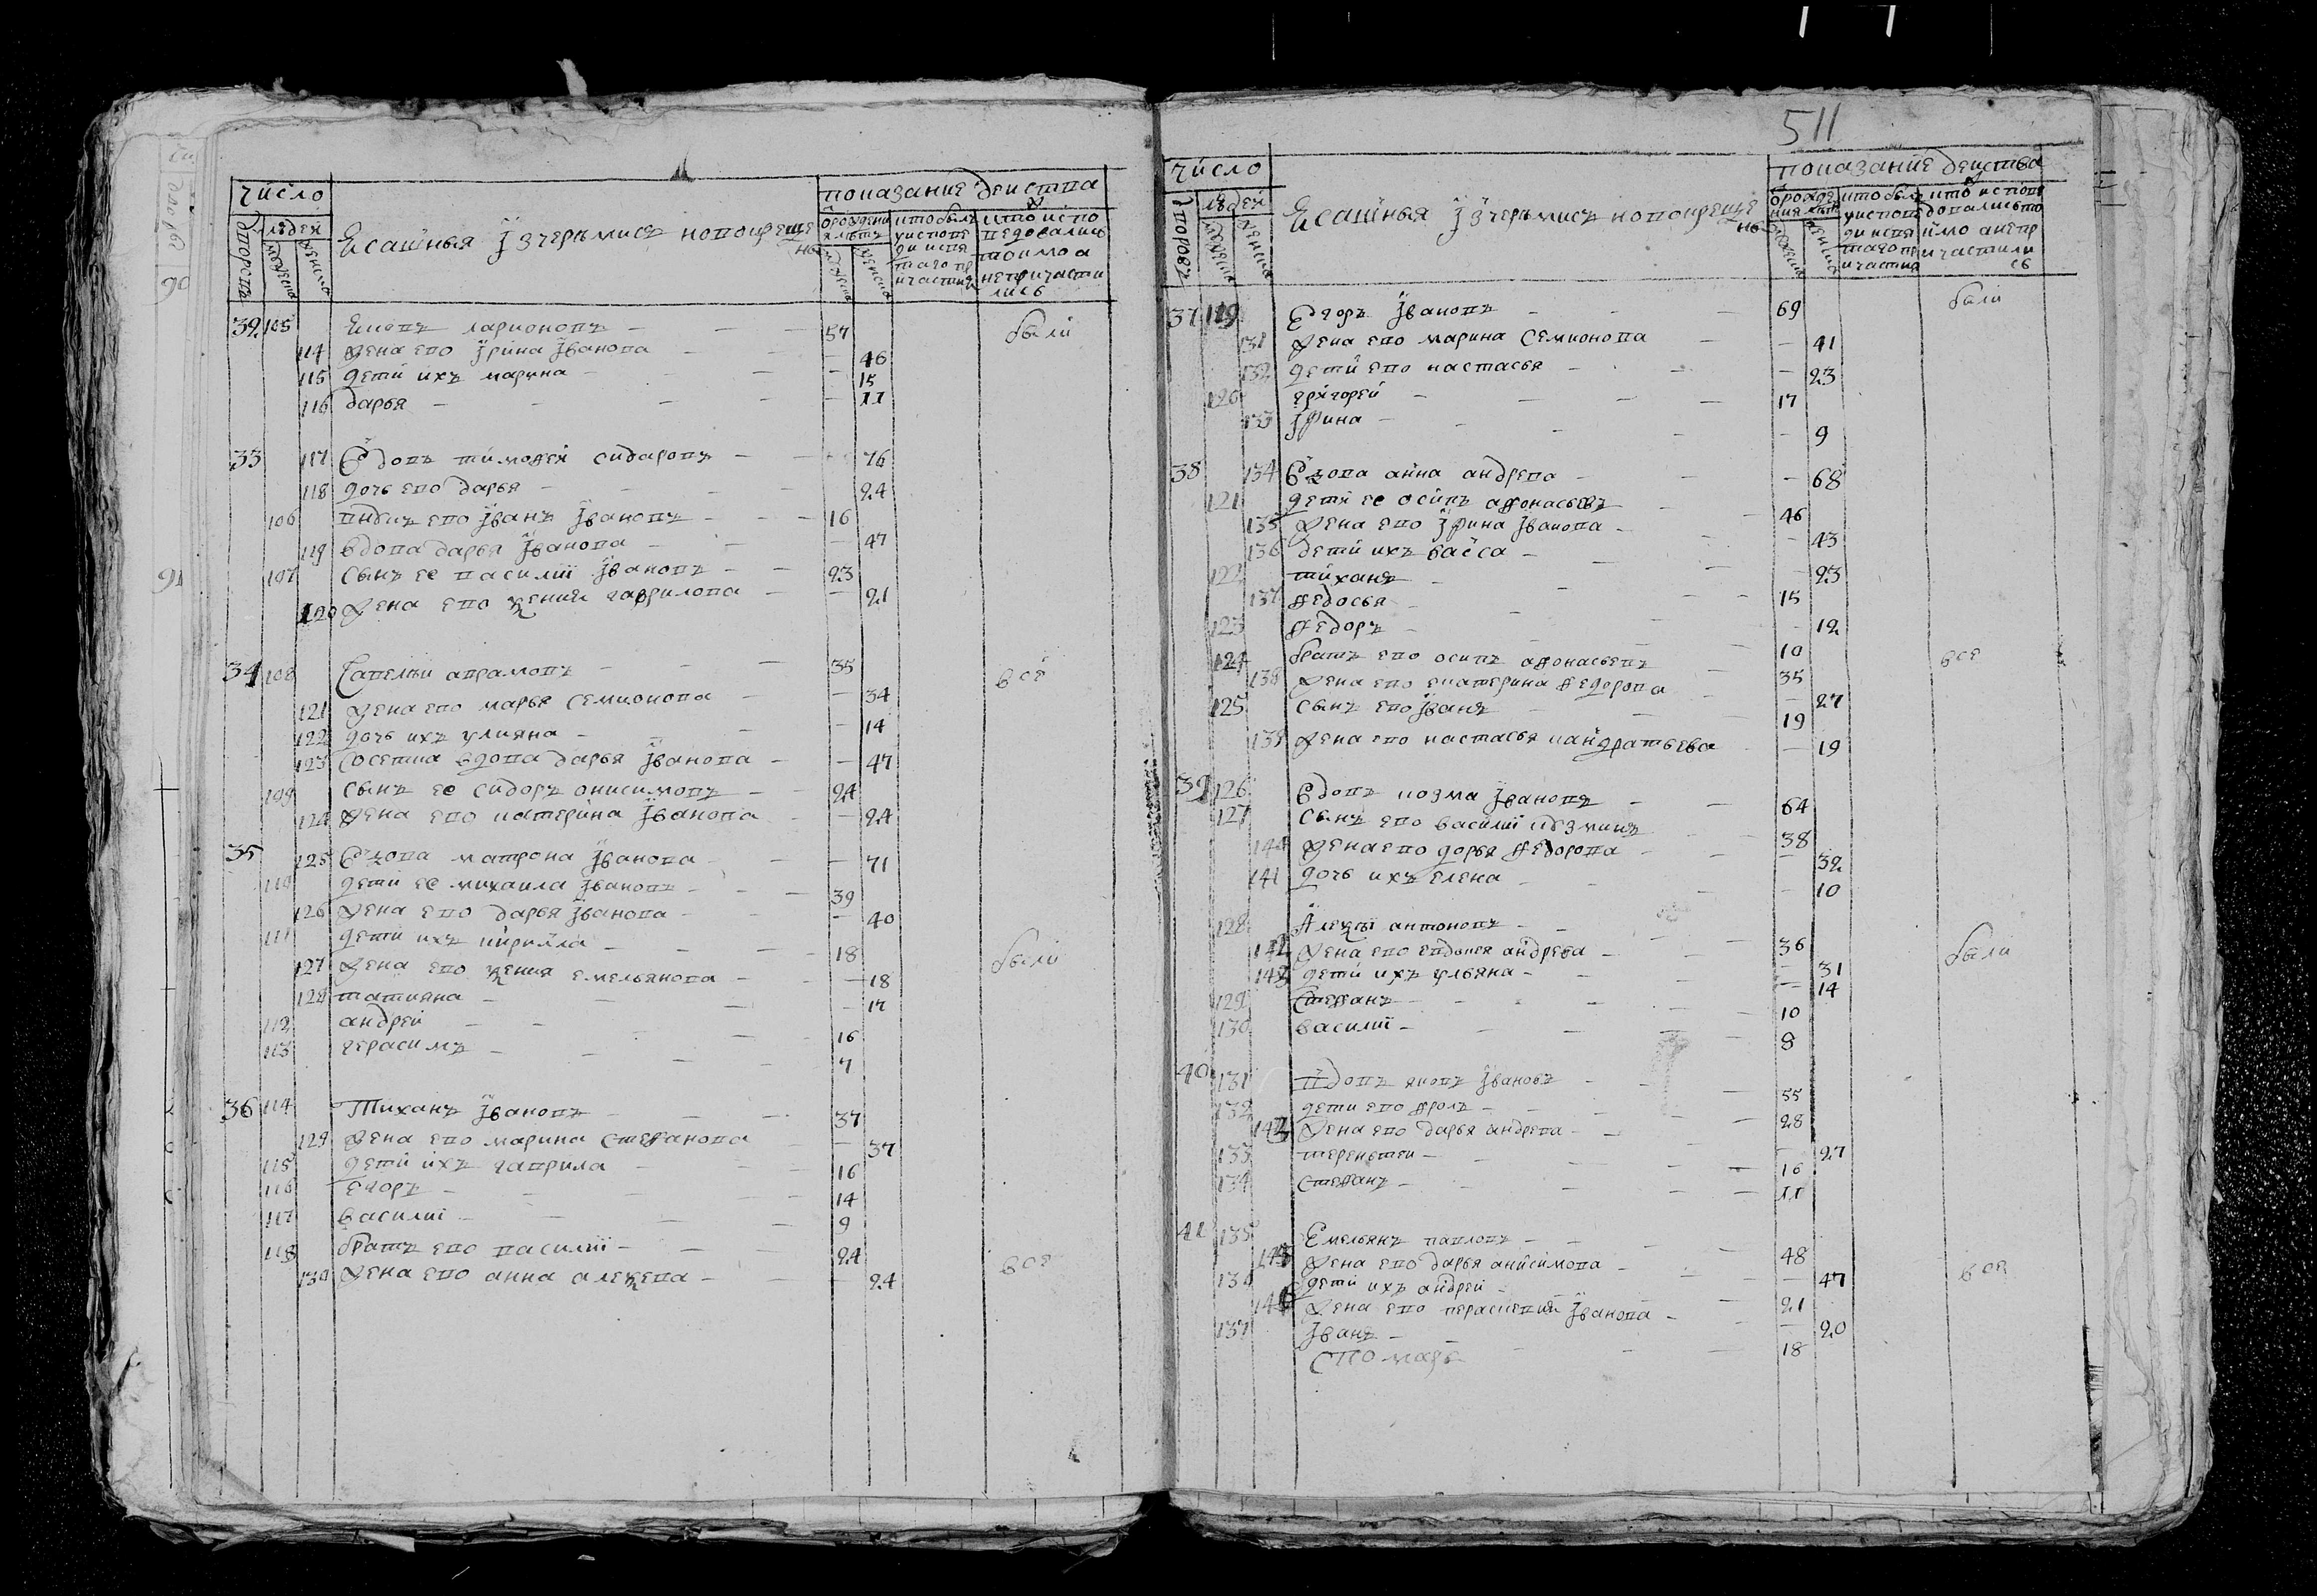 число
показание деиства
дворовъ
людей
мужеска
женска
Ясашныя Ӥзчеремисъ новокреще
но
32 105 Яковъ ларионовъ 57 были
114 жена ево Ӥрина Ӥванова 46
115 дети ихъ марина 15
116 дарья 11
33 117 Вдовъ тимофей сидаровъ 76
118 дочь ево дарья 24
106 внукъ ево Ӥванъ Ӥвановъ 16
119 вдова дарья Ӥванова 47
107 сынъ ее василиӥ Ӥвановъ 23
120 жена ево ѯения гаврилова 21
34 108 Савелей аврамовъ 35 все
121 жена ево марья семионова 34
122 дочь ихъ улияна 14
123 Сосетка вдова дарья Ӥванова 47
109 сынъ ее сидоръ онисимовъ 24
124 жена ево катерина Ӥванова 24
35 125 Вдова матрона Ӥванова 71
110 дети ее михаила Ӥвановъ 39
126 жена ево дарья Ӥванова 40
111 дети ихъ кирилла 18 были
127 жена ево ѯения емельянова 18
128 татияна 17
112 андрей 16
113 герасимъ 7
36 114 Тиханъ Ӥвановъ 37
129 жена ево марина стефанова 37
115 дети ихъ гаврила 16
116 егоръ 14
117 василиӥ 9
118 братъ ево василиӥ 24
130 жена ево анна алеѯева 24 все
511
число
показание деиства
дворовъ
людей
мужеска
женска
Ясашныя Ӥзчеремисъ новокреще
но
37 119 Егоръ Ӥвановъ 69 были
131 жена ево марина семионова 41
132 дети ево настасья 23
120 григорей 17
133 Ӥрина 9
38 134 Вдова анна андрева 68
121 дети ее осипъ афонасьевъ 46
135 жена ево Ӥрина Ӥванова 43
136 дети ихъ васса 23
122 тиханъ 15
137 федосья 12
123 федоръ 10
124 братъ ево осипъ афонасьевъ 35 все
138 жена ево екатерина федорова 27
125 сынъ ево Ӥванъ 19
139 жена ево настасья кандратьева 19
39 126 Вдовъ козма Ӥвановъ 64
127 сынъ ево василиӥ кузминъ 38
140 жена ево дарья федорова 32
141 дочь ихъ елена 10
128 Алеѯӥ антоновъ 36 были
142 жена ево евдокея андреева 31
143 дети ихъ ульяна 14
129 стефанъ 10
130 василиӥ 8
40 131 Вдовъ яковъ Ӥвановъ 55
132 дети ево фролъ 28
144 жена ево дарья андрева 27
133 терентеи 16
134 стефанъ 11
41 135 Емельянъ павловъ 48
145 жена ево дарья анисимова 47 все
136 дети ихъ андрей 21
146 жена ево пераскевия Ӥванова 20
137 Ӥванъ 18